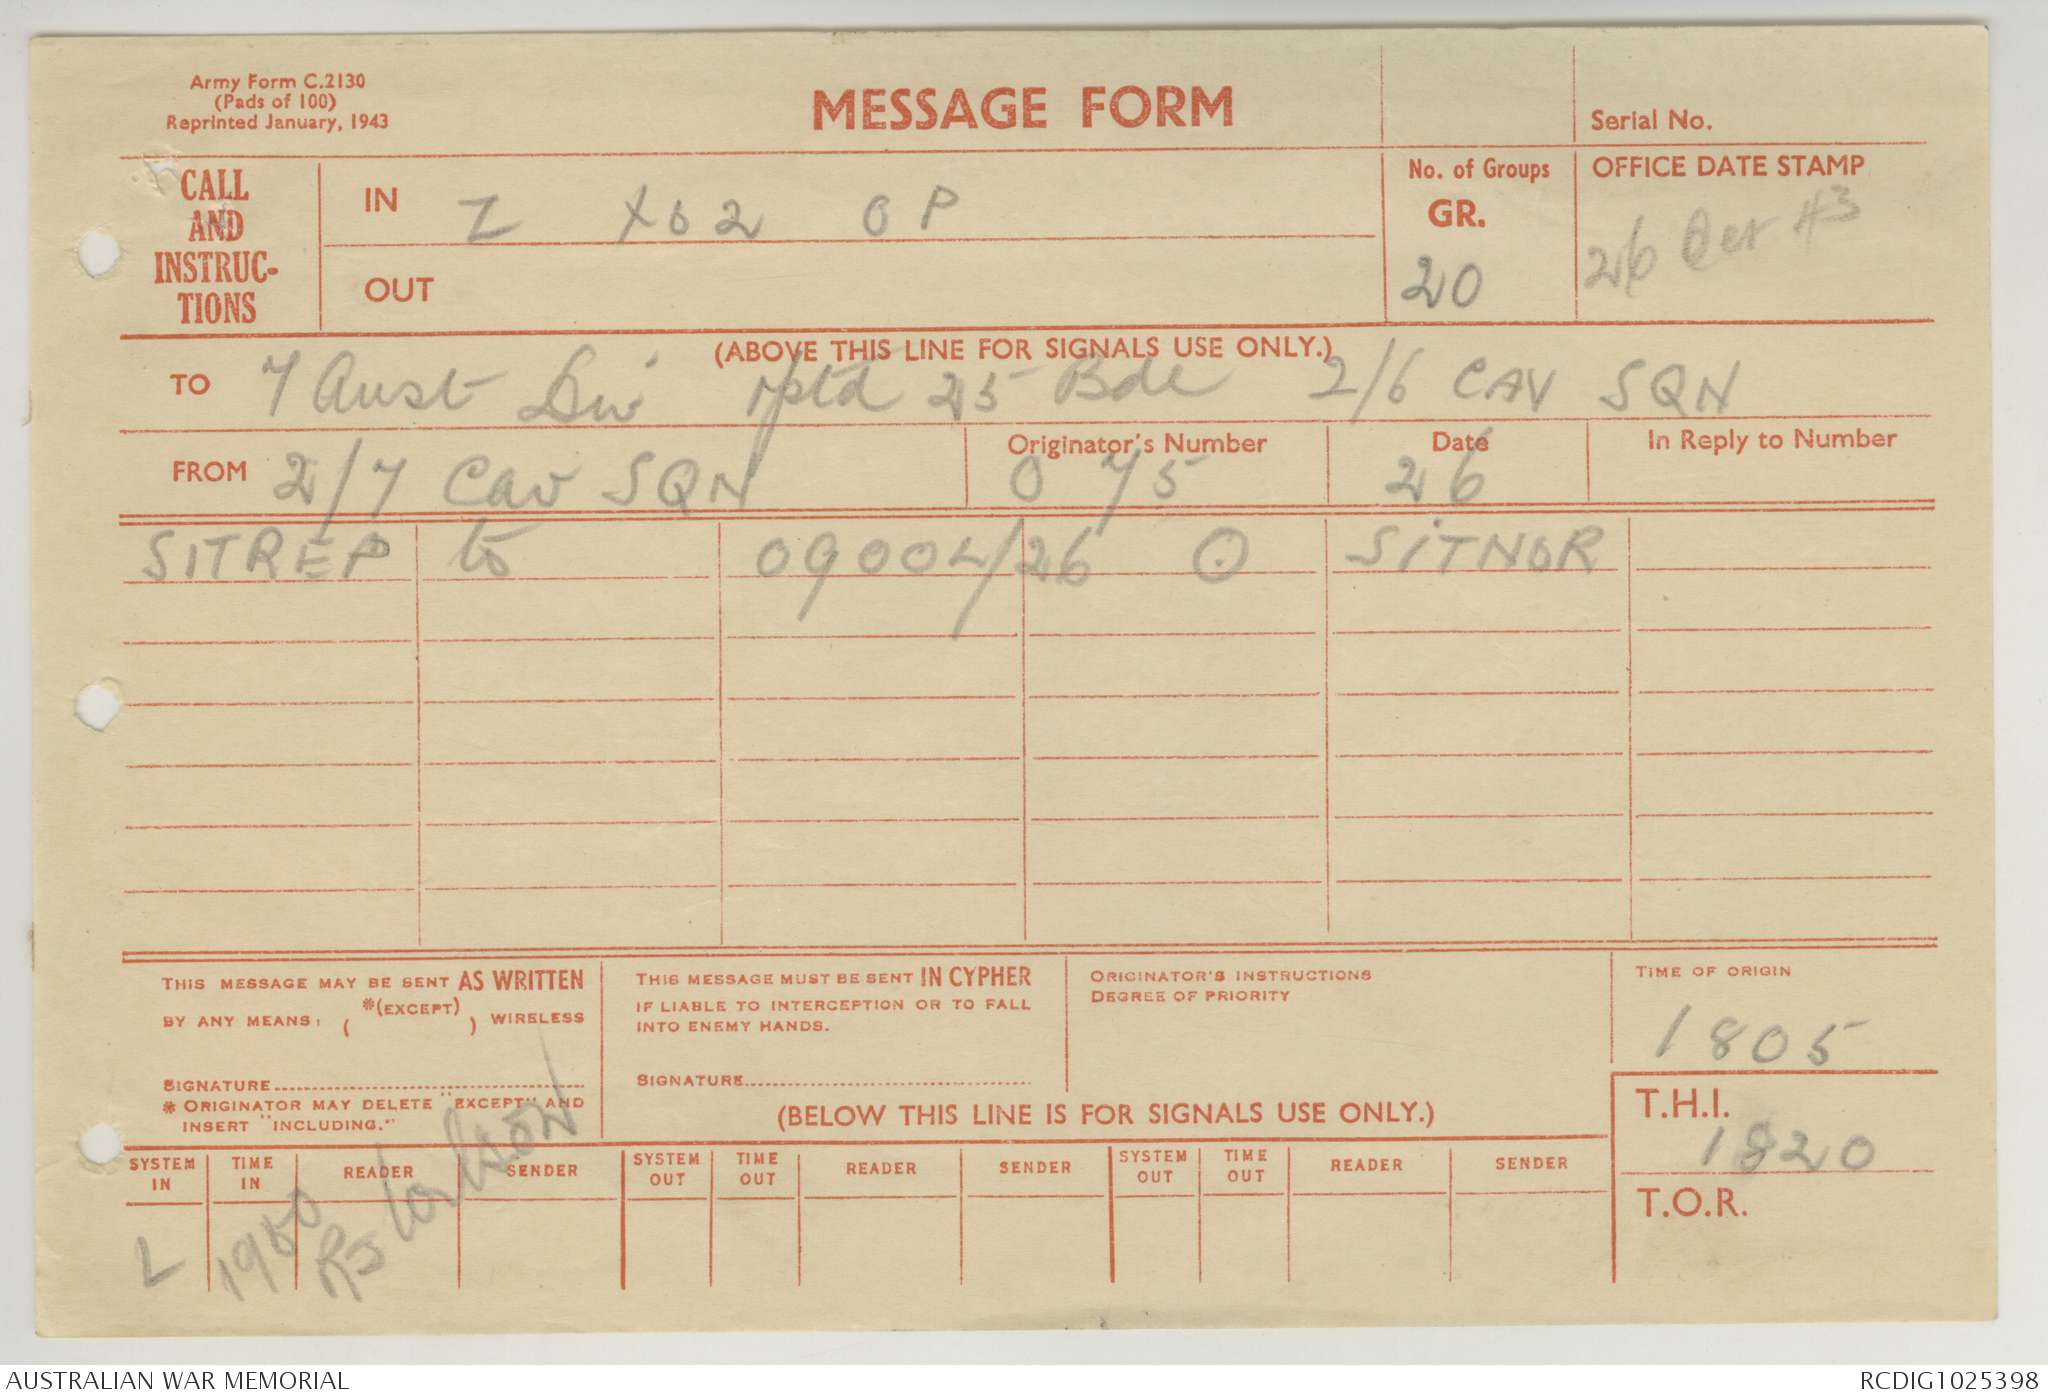 Army Form C.2130
(Pads of 100)
Reprinted January, 1943
MESSAGE FORM
Serial No.
CALL AND INSTRUC-TIONS
IN Z X02 OP
OUT
No. of Groups
GR.
20
OFFICE DATE STAMP
26 Oct 43
(ABOVE THIS LINE FOR SIGNALS USE ONLY.)
TO 7 Aust Div rptd 25 Bde 2/6 CAV SQN
FROM 2/7 Cav SQN
Originator's Number
0 75
Date
26
In Reply to Number
SITREP to 0900L/26 ⊙ SITNOR
THIS MESSAGE MAY BE SENT AS WRITTEN
BY ANY MEANS: ( *(EXCEPT) ) WIRELESS
SIGNATURE
* ORIGINATOR MAY DELETE "EXCEPT" AND
INSERT "INCLUDING."
THIS MESSAGE MUST BE SENT IN CYPHER
IF LIABLE TO INTERCEPTION OR TO FALL
INTO ENEMY HANDS.
SIGNATURE
ORIGINATOR'S INSTRUCTIONS
DEGREE OF PRIORITY
TIME OF ORIGIN
1805
(BELOW THIS LINE IS FOR SIGNALS USE ONLY.)
T.H.I.
1820
T.O.R.
SYSTEM IN TIME IN READER SENDER SYSTEM OUT TIME OUT READER SENDER SYSTEM OUT TIME OUT READER SENDER
L
AUSTRALIAN WAR MEMORIAL
RCDIG1025398